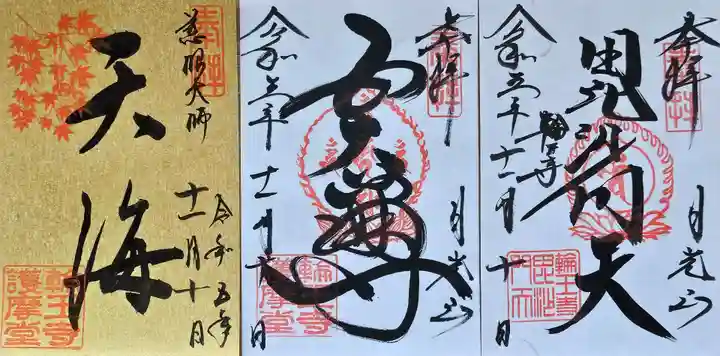 奉拝
日光山
毘沙門天
輪王寺
令和五年十一月十日
輪王寺
毘沙
門天
奉拝
日光山
尊
令和五年十一月十日
輪王寺
護摩堂
奉拝
慈眼大師
天海
令和五年
十一月十日
輪王寺
護摩堂